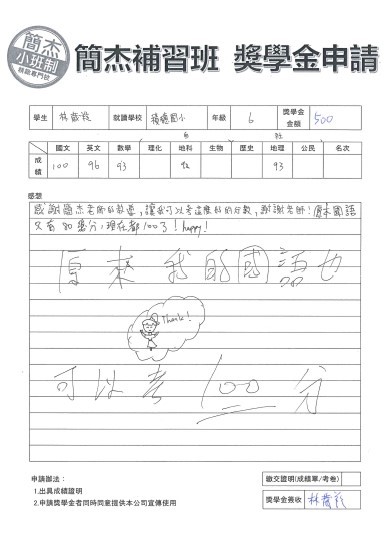 簡杰
小班制
簡杰補習班 獎學金申請
學生 林 就讀學校 積穗國小 年級 6 獎學金金額 500
自 社
國文 英文 數學 理化 地科 生物 歷史 地理 公民 名次
成績 100 96 93 93
感想
感謝簡杰老師的教導,讓我可以考這麼好的分數,謝謝老師!原本國語
又有 80 幾分,現在都100了! happy!
原來 我的國語也
Thanks!
可以考 100 分
申請辦法:
1.出具成績證明
2.申請獎學金者同時同意提供本公司宣傳使用
繳交證明(成績單/考卷)
獎學金簽收 林